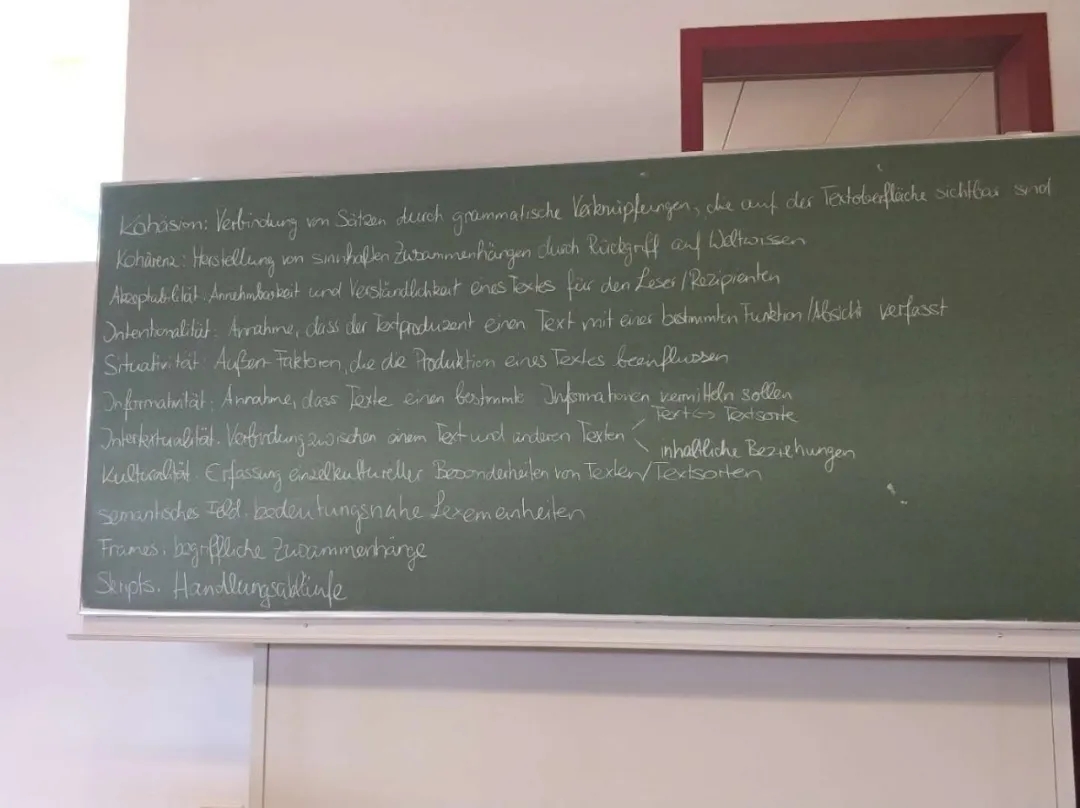 Kohäsion: Verbindung von Sätzen durch grammatische Verknüpfungen, die auf der Textoberfläche sichtbar sind
Kohärenz: Herstellung von sinnhaften Zusammenhängen durch Rückgriff auf Weltwissen
Akzeptabilität: Annehmbarkeit und Verständlichkeit eines Textes für den Leser/Rezipienten
Intentionalität: Annahme, dass der Textproduzent einen Text mit einer bestimmten Funktion/Absicht verfasst
Situativität: Außen-Faktoren, die die Produktion eines Textes beeinflussen
Informativität: Annahme, dass Texte einen bestimmte Informationen vermitteln sollen
Intertextualität: Verbindung zwischen einem Text und anderen Texten < Text <-> Textsorte
inhaltliche Beziehungen
Kulturalität: Erfassung einzelkultureller Besonderheiten von Texten/Textsorten
semantisches Feld: bedeutungsnahe Lexemeinheiten
Frames: begriffliche Zusammenhänge
Skripts: Handlungsabläufe